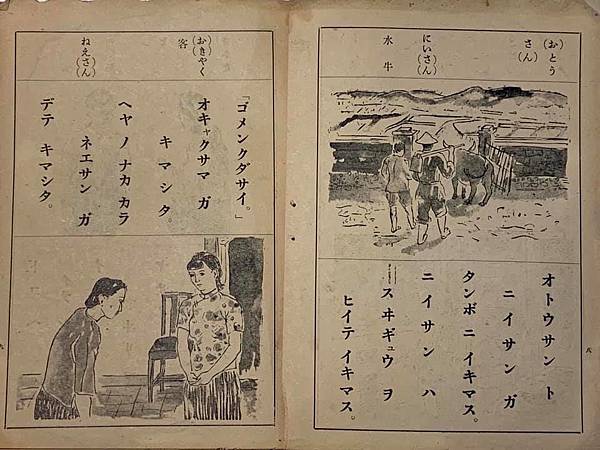 (おとう)
さん
にい(さん)
水牛
オトウサン ト
ニイサンガ
タンボ ニ イキマス。
ニイサン ハ
スヰギュウ ヲ
ヒイテ イキマス。
八
(おきやく)
客
ねえ(さん)
「ゴメンクダサイ。」
オキャクサマ ガ
キマシタ。
ヘヤ ノ ナカ カラ
ネエサン ガ
デテ キマシタ。